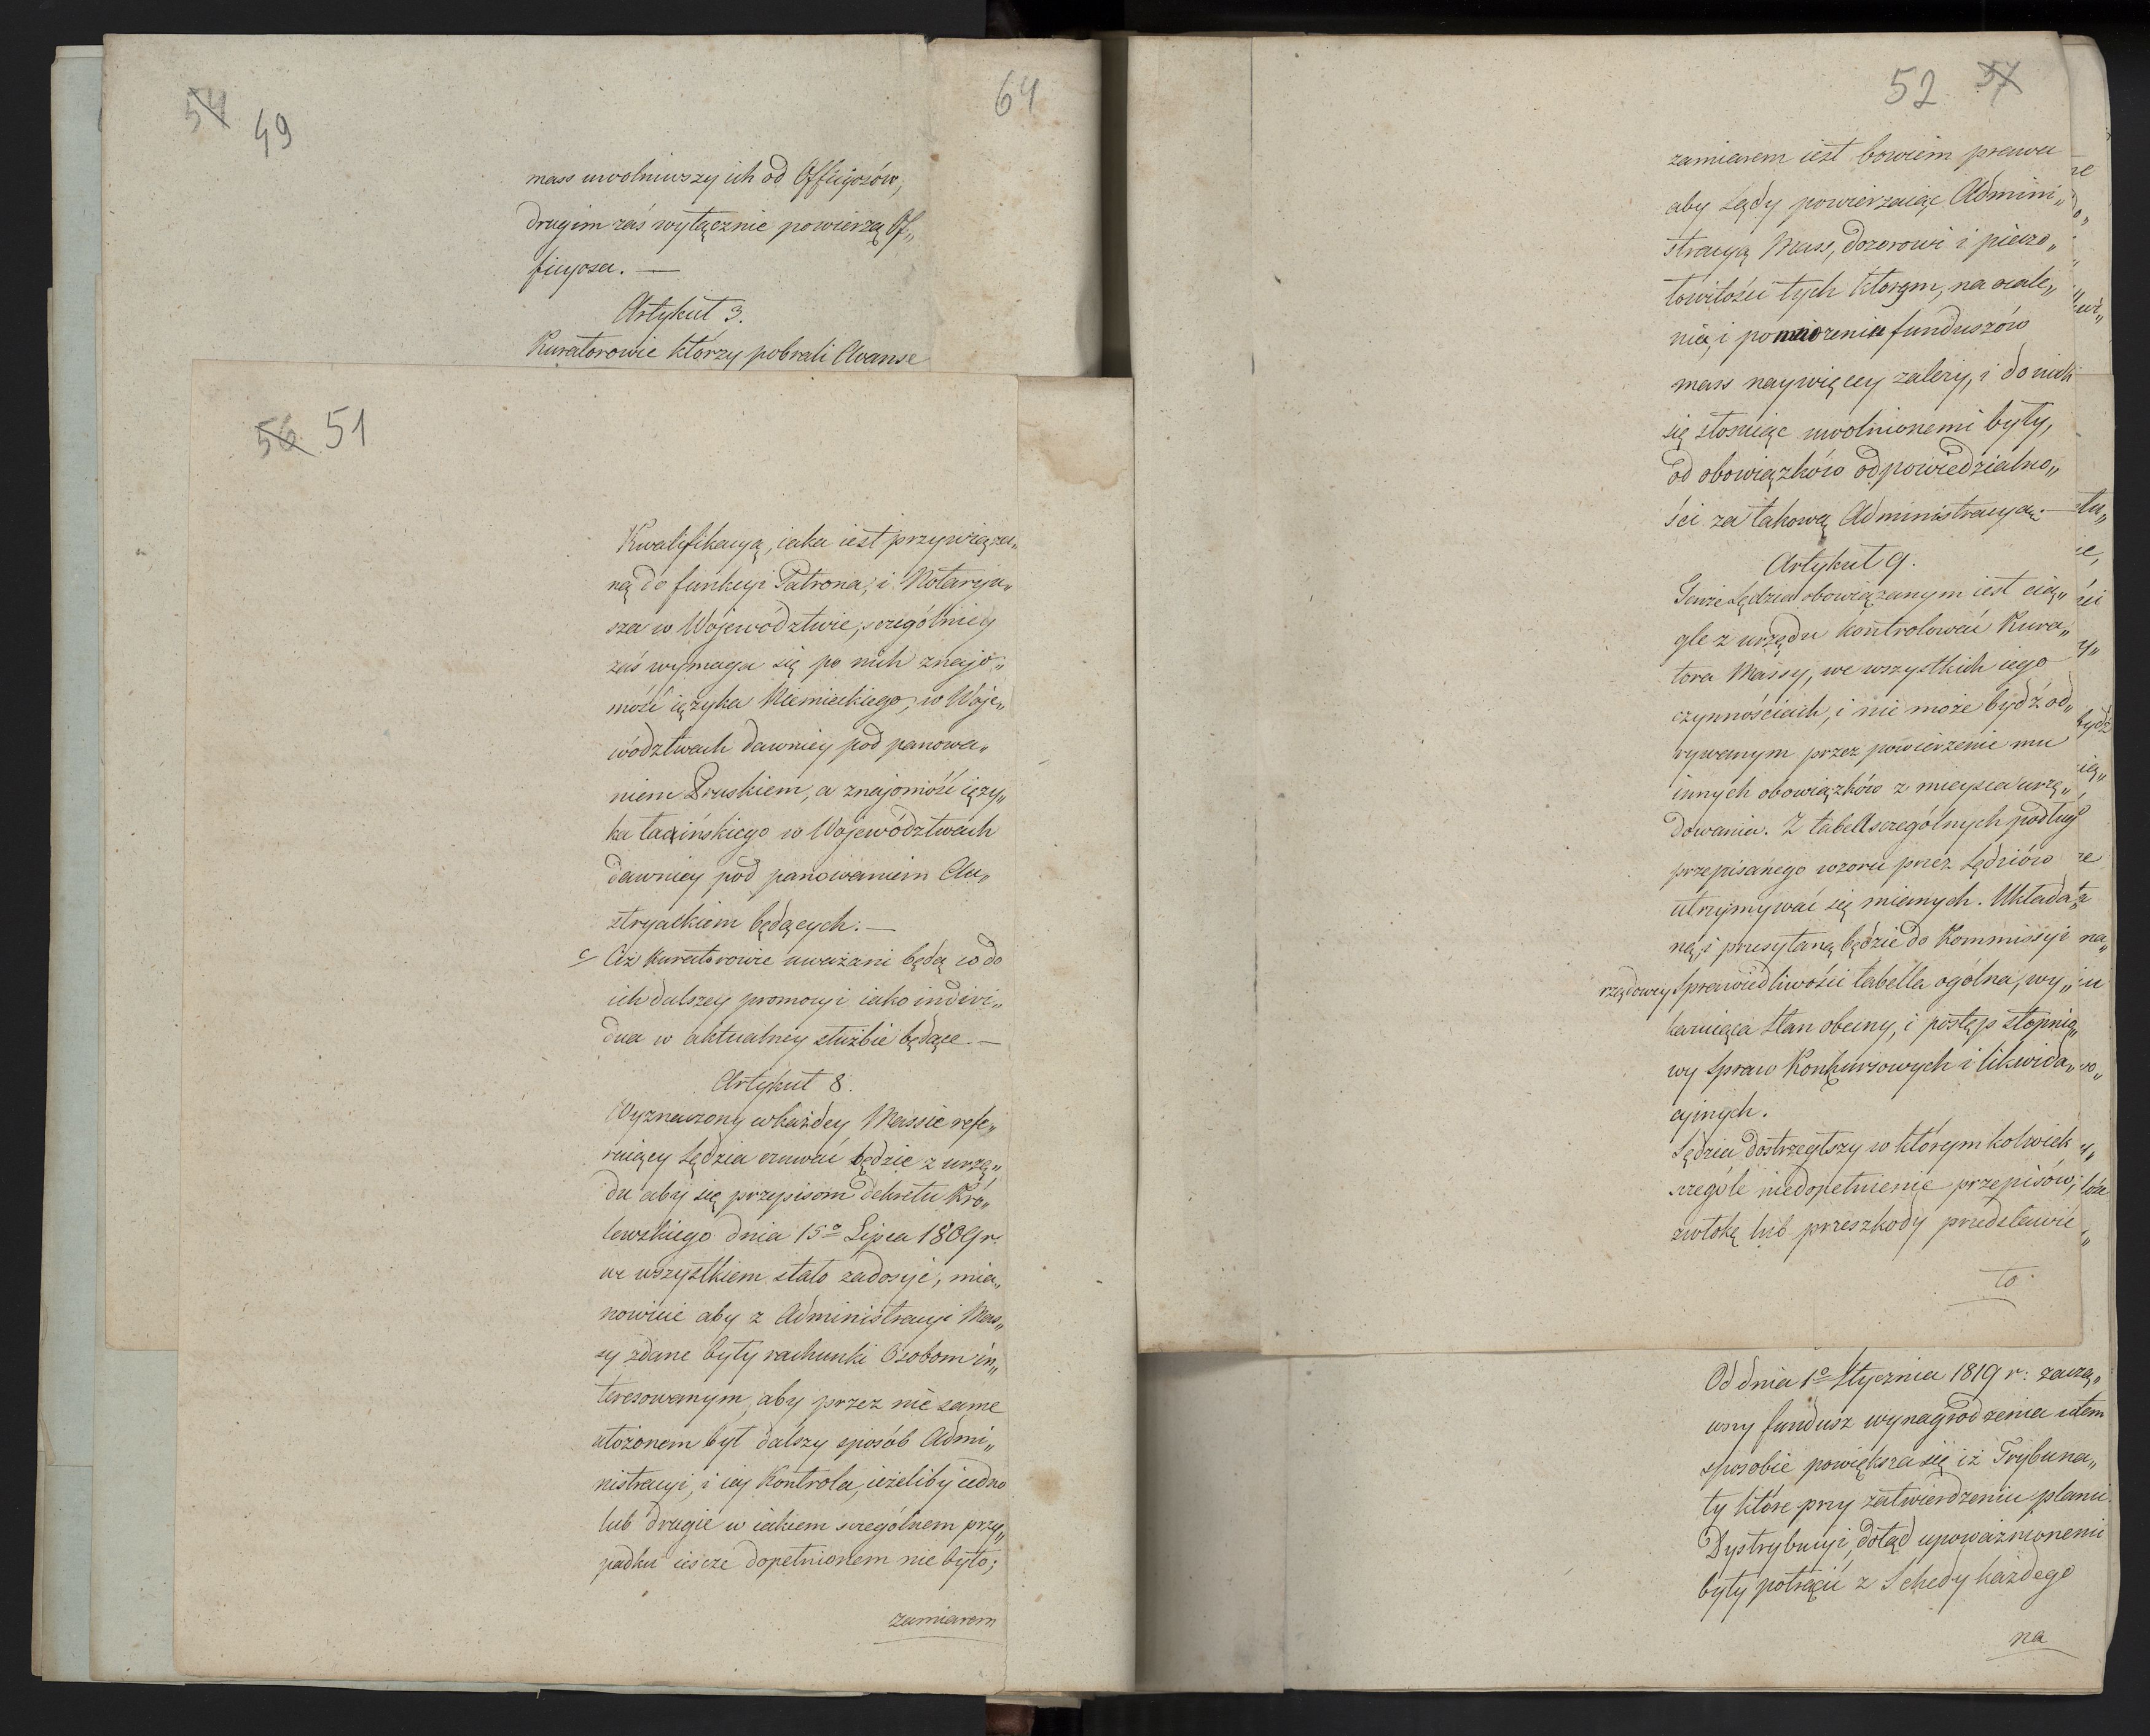 54 49
64
mass uwolniwszy ich od Officjozów,
drugim zaś wyłącznie powierzą Of„
ficyosa. —
Artykuł 3.
Kuratorowie którzy pobrali Avanse
56 51
Kwalifikacyą, iaka iest przywiąza„
ną do funkcyi Patrona, i Notaryu„
sza w Województwie, szczególniey
zaś wymaga się po nich znajo„
mość ięzyka Niemieckiego, w Woje„
wództwach dawniey pod panowa„
niem Pruskiem, a znajomość ięzy„
ka łacińskiego w Województwach
dawniey pod panowaniem Au„
stryackiem będących. —
c/ Ciż Kuratorowie uważani będą co do
ich dalszey promocyi iako indivi„
dua w aktualney służbie będące. —
Artykuł 8.
Wyznaczony w każdey Massie refe„
ruiący Sędzia czuwać będzie z urzę„
du aby się przepisom Dekretu Kró„
lewskiego dnia 15o Lipca 1809 r.
we wszystkiem stało zadosyć, mia„
nowicie aby z Administracyi Mas„
sy zdane były rachunki Osobom in„
teresowanym, aby przez nie same
ułożonem był dalszy sposób Admi„
nistracyi, i iey Kontrola, ieżeliby iedno
lub drugie w iakiem szczególnem przy„
padku ieszcze dopełnionem nie było;
zamiarem
52 57
zamiarem iest bowiem prawa
aby Sądy powierzaiąc Admini„
stracyą Mass, dozorowi i pieczo„
łowitości tych ktorym, na ocale„
nia, i pomnożenia funduszów
mass naywięcey zależy, i do nich
się stosuiąc uwolnionemi były,
od obowiązków odpowiedzialno„
ści za takową Administracyą. —
Artykuł 9.
Tenże Sędzia obowiązanym iest cią„
gle z urzędu kontrolować Kura„
tora Massy, we wszystkich iego
czynnościach, i nie może bydź od„
rywanym przez powierzenie mu
innych obowiązków z mieysca urzę„
dowania. Z tabell szczególnych podług
przepisanego wzoru przez Sędziów
utrzymywać się mianych. Układa„
ną, i przesyłaną będzie do Kommissyi
rządowey Sprawiedliwości tabella ogólna, wy„
kazuiąca stan obecny, i postęp stopnio„
wy Spraw Konkursowych i likwida„
cyjnych.
Sędzia dostrzegłszy w którymkolwiek
szczególe niedopełnienie przepisów,
zwłokę lub przeszkody przedstawi
to
Od dnia 1o Stycznia 1819 r: zaczą„
wszy fundusz wynagrodzenia w tem
sposobie powiększa się iż Trybuna„
ły które przy zatwierdzeniu planu
Dystrybucyi, dotąd upoważnionemi
były potrącić z Schedy każdego
na